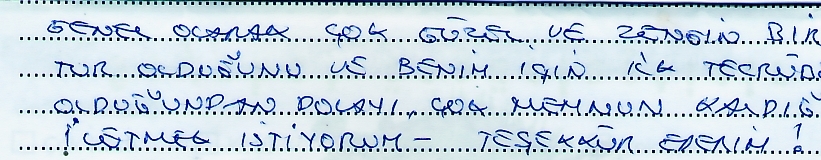 GENEL OLARAK ÇOK GÜZEL VE ZENGİN BİR
TUR OLDUĞUNU VE BENİM İÇİN İLK TECRÜB
OLDUĞUNDAN DOLAYI, ÇOK MEMNUN KALDIĞ
İSTİYORUM – TEŞEKKÜR EDERİM !